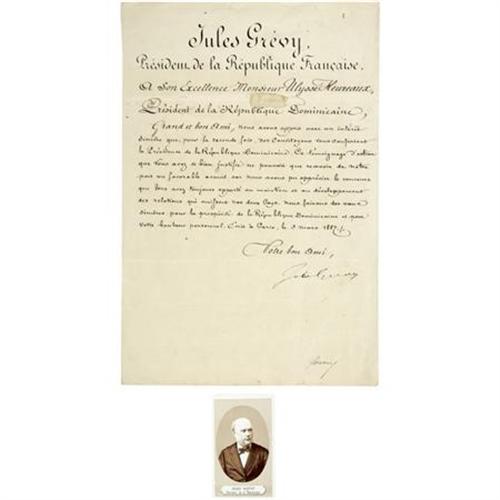 Jules Grévy,
Président de la République Française.
A Son Excellence Monsieur Ulysse Heureaux,
Président de la République Dominicaine,
Grand et bon Ami, nous avons appris avec un intérêt
sincère que, pour la seconde fois, vos Concitoyens vous confiaient
la Présidence de la République Dominicaine. Ce témoignage d'estime
que Vous avez si bien justifié ne pouvait que recevoir de notre
part un favorable accueil car nous avons pu apprécier le concours
que Vous avez toujours apporté au maintien et au développement
des relations qui unissent nos deux Pays. Nous faisons des vœux
sincères pour la prospérité de la République Dominicaine et pour
votre bonheur personnel. Ecrit à Paris, le 3 mars 1887.
Votre bon Ami,
Jules Grévy